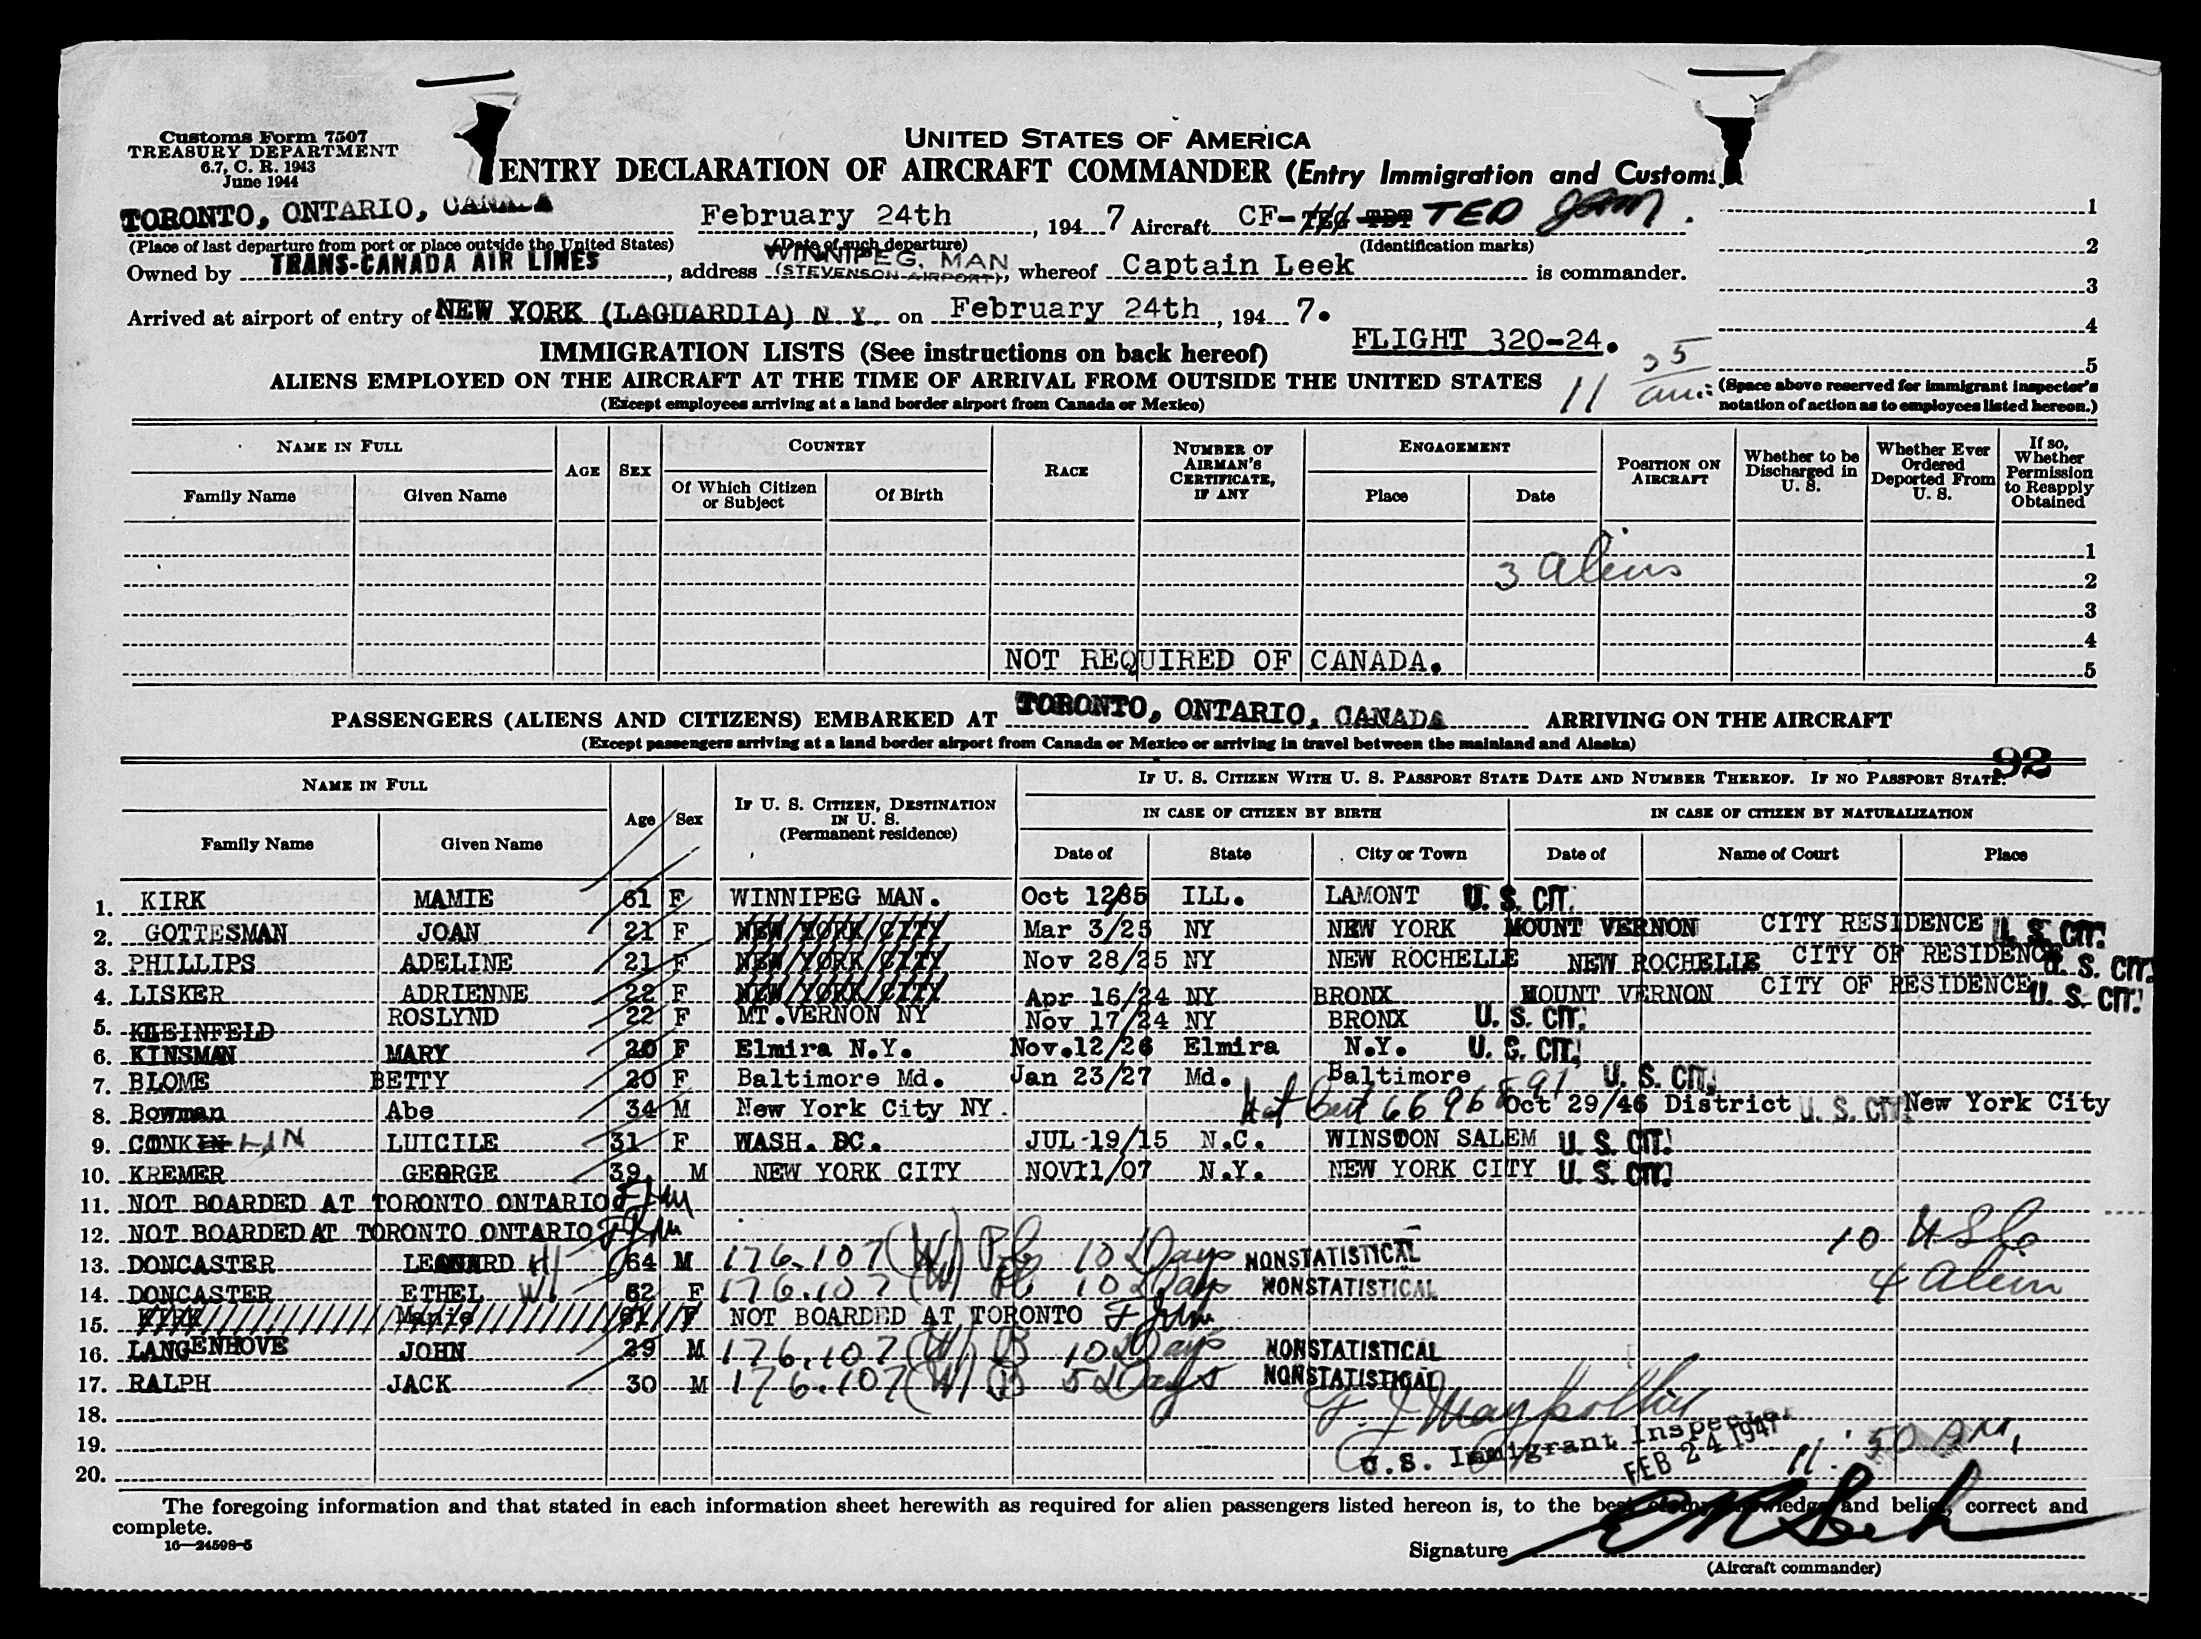 Customs Form 7507
TREASURY DEPARTMENT
6.7, C. R. 1943
June 1944
UNITED STATES OF AMERICA
ENTRY DECLARATION OF AIRCRAFT COMMANDER (Entry Immigration and Customs)
TORONTO, ONTARIO, CANADA February 24th, 1947 Aircraft CF- TED 1
(Place of last departure from port or place outside the United States) (Date of such departure) (Identification marks) 2
Owned by TRANS-CANADA AIR LINES, address WINNIPEG, MAN (STEVENSON AIRPORT), whereof Captain Leek is commander. 3
Arrived at airport of entry of NEW YORK (LAGUARDIA) N Y on February 24th, 1947. 4
FLIGHT 320-24.
IMMIGRATION LISTS (See instructions on back hereof) 5
ALIENS EMPLOYED ON THE AIRCRAFT AT THE TIME OF ARRIVAL FROM OUTSIDE THE UNITED STATES 11 35 am. (Space above reserved for immigrant inspector's
(Except employees arriving at a land border airport from Canada or Mexico) notation of action as to employees listed hereon.)
NAME IN FULL AGE SEX COUNTRY RACE NUMBER OF AIRMAN'S CERTIFICATE, IF ANY ENGAGEMENT POSITION ON AIRCRAFT Whether to be Discharged in U. S. Whether Ever Ordered Deported From U. S. If so, Whether Permission to Reapply Obtained
Family Name Given Name Of Which Citizen or Subject Of Birth Place Date
1
3 aliens 2
3
4
NOT REQUIRED OF CANADA. 5
PASSENGERS (ALIENS AND CITIZENS) EMBARKED AT TORONTO, ONTARIO, CANADA ARRIVING ON THE AIRCRAFT
(Except passengers arriving at a land border airport from Canada or Mexico or arriving in travel between the mainland and Alaska)
92
NAME IN FULL Age Sex IF U. S. CITIZEN, DESTINATION IN U. S. (Permanent residence) IF U. S. CITIZEN WITH U. S. PASSPORT STATE DATE AND NUMBER THEREOF. IF NO PASSPORT STATE:
IN CASE OF CITIZEN BY BIRTH IN CASE OF CITIZEN BY NATURALIZATION
Family Name Given Name Date of State City or Town Date of Name of Court Place
1. KIRK MAMIE 61 F WINNIPEG MAN. Oct 12/85 ILL. LAMONT U. S. CIT.
2. GOTTESMAN JOAN 21 F NEW YORK CITY Mar 3/25 NY NEW YORK MOUNT VERNON CITY RESIDENCE U. S. CIT.
3. PHILLIPS ADELINE 21 F NEW YORK CITY Nov 28/25 NY NEW ROCHELLE NEW ROCHELLE CITY OF RESIDENCE U. S. CIT.
4. LISKER ADRIENNE 22 F NEW YORK CITY Apr 16/24 NY BRONX MOUNT VERNON CITY OF RESIDENCE U. S. CIT.
5. KLEINFELD ROSLYND 22 F MT.VERNON NY Nov 17/24 NY BRONX U. S. CIT.
6. KINSMAN MARY 20 F Elmira N.Y. Nov.12/26 Elmira N.Y. U. S. CIT.
7. BLOME BETTY 20 F Baltimore Md. Jan 23/27 Md. Baltimore U. S. CIT.
8. Bowman Abe 34 M New York City NY. Nat Cert 6696891 Oct 29/46 District U. S. CIT. New York City
9. CONKLIN LUICILE 31 F WASH. DC. JUL-19/15 N.C. WINSTON SALEM U. S. CIT.
10. KREMER GEORGE 39 M NEW YORK CITY NOV11/07 N.Y. NEW YORK CITY U. S. CIT.
11. NOT BOARDED AT TORONTO ONTARIO
12. NOT BOARDED AT TORONTO ONTARIO 10 USC
13. DONCASTER LEONARD H 64 M 176.107 (W) 10 Days NONSTATISTICAL
14. DONCASTER ETHEL W 62 F 176.107 (W) 10 Days NONSTATISTICAL 4 alien
15. KIRK Mamie 61 F NOT BOARDED AT TORONTO
16. LANGENHOVE JOHN 29 M 176.107 (W) B 10 Days NONSTATISTICAL
17. RALPH JACK 30 M 176.107 (W) B 5 Days NONSTATISTICAL
18.
19. U.S. Immigrant Inspector
20. FEB 24 1947 11:50 AM,
The foregoing information and that stated in each information sheet herewith as required for alien passengers listed hereon is, to the best of my knowledge and belief, correct and
complete.
16—24598-5
Signature
(Aircraft commander)